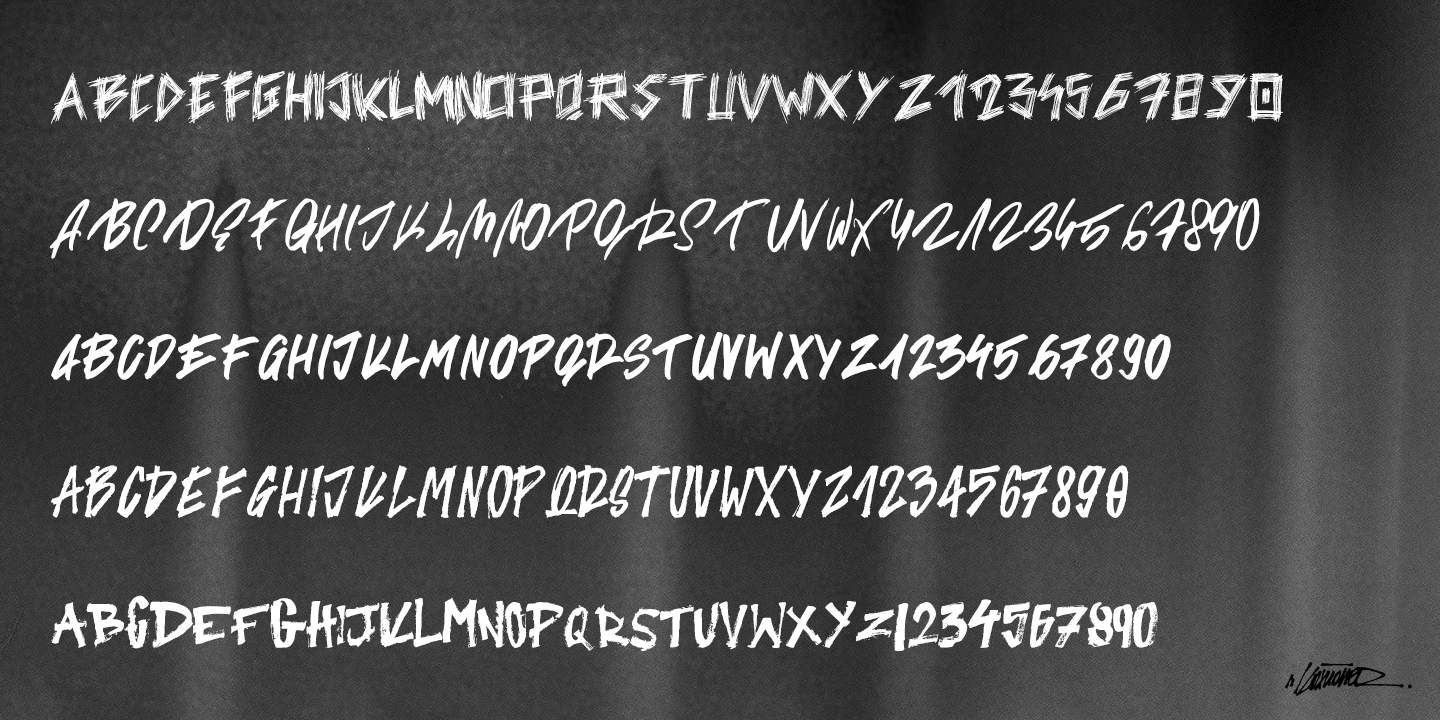 ABCDEFGHIJKLMNOPQRSTUVWXYZ1234567890
ABCDEFGHIJKLMNOPQRSTUVWXYZ1234567890
ABCDEFGHIJKLMNOPQRSTUVWXYZ1234567890
ABCDEFGHIJKLMNOPQRSTUVWXYZ1234567890
ABCDEFGHIJKLMNOPQRSTUVWXYZ1234567890